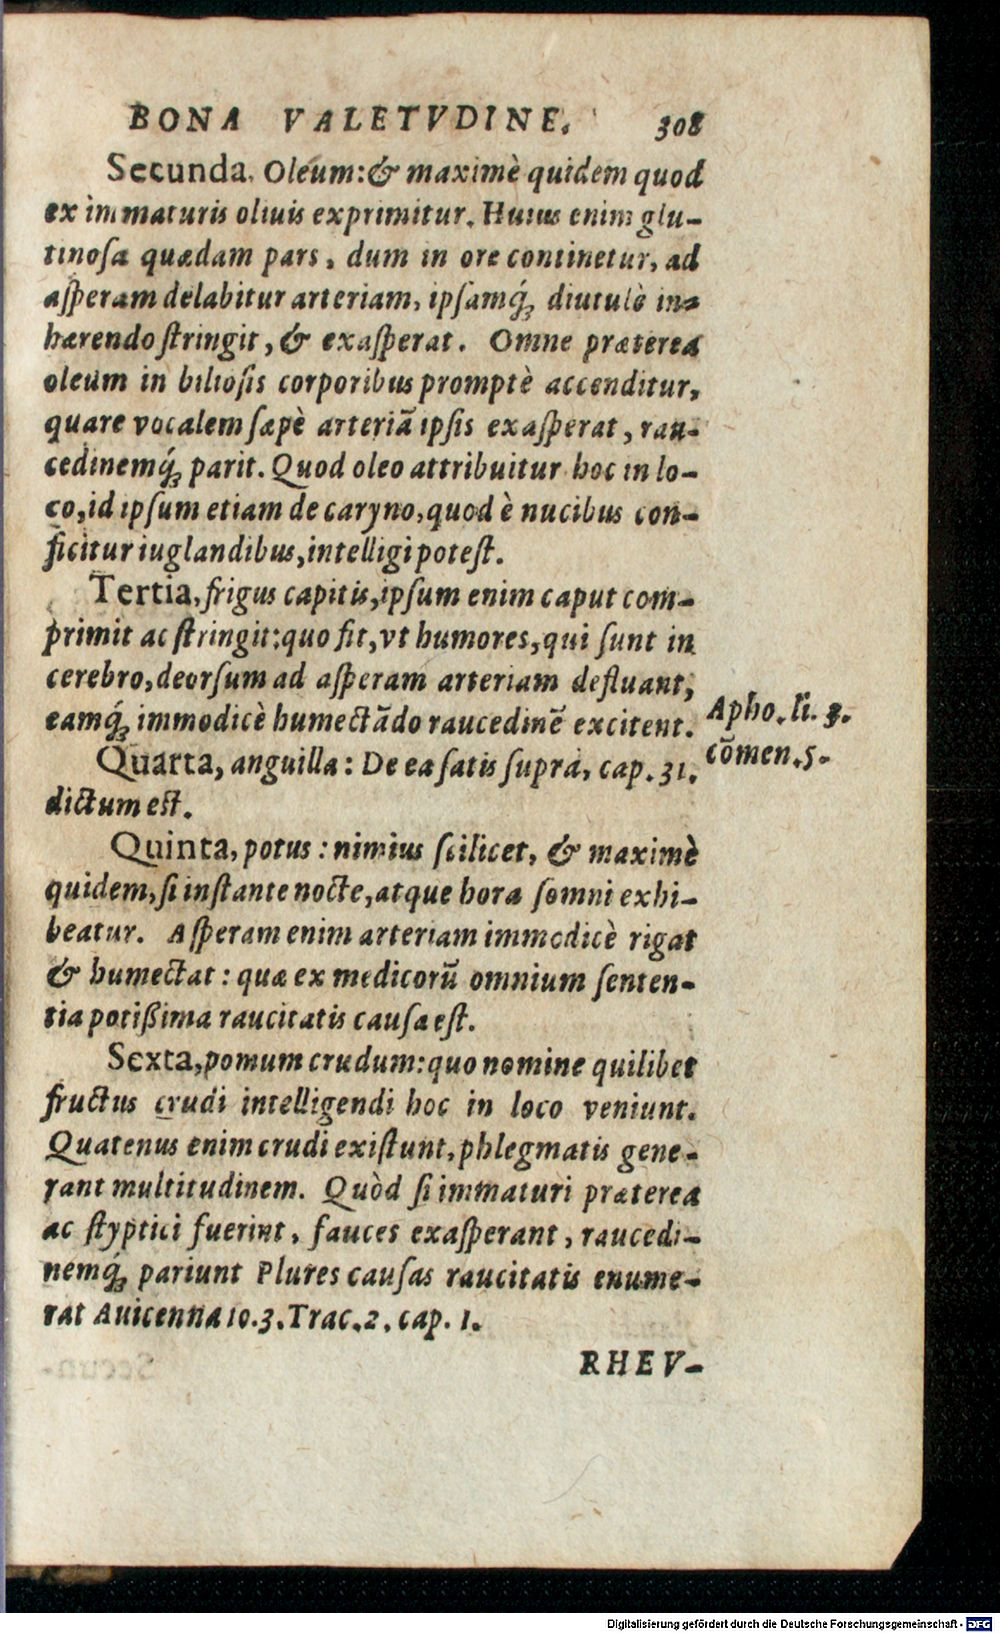 BONA VALETVDINE. 308
Secunda. Oleum: & maximè quidem quod
ex immaturis oliuis exprimitur. Huius enim glu-
tinoſa quædam pars, dum in ore continetur, ad
aſperam delabitur arteriam, ipſamq́; diutulè in-
hærendo ſtringit, & exaſperat. Omne præterea
oleum in bilioſis corporibus promptè accenditur,
quare vocalem ſæpè arteriā ipſis exaſperat, rau-
cedinemq́; parit. Quod oleo attribuitur hoc in lo-
co, id ipſum etiam de caryno, quod è nucibus con-
ficitur iuglandibus, intelligi poteſt.
Tertia, frigus capitis, ipſum enim caput com-
primit ac ſtringit: quo fit, vt humores, qui ſunt in
cerebro, deorſum ad aſperam arteriam defluant,
eamq́; immodicè humectādo raucedinē excitent.
Apho. li. 3.
cōmen. 5.
Quarta, anguilla: De ea ſatis ſuprà, cap. 31.
dictum eſt.
Quinta, potus: nimius ſcilicet, & maximè
quidem, ſi inſtante nocte, atque hora ſomni exhi-
beatur. Aſperam enim arteriam immodicè rigat
& humectat: quæ ex medicorū omnium ſenten-
tia potißima raucitatis cauſa eſt.
Sexta, pomum crudum: quo nomine quilibet
fructus crudi intelligendi hoc in loco veniunt.
Quatenus enim crudi exiſtunt, phlegmatis gene-
rant multitudinem. Quòd ſi immaturi præterea
ac ſtyptici fuerint, fauces exaſperant, raucedi-
nemq́; pariunt Plures cauſas raucitatis enume-
rat Auicenna 10. 3. Trac. 2. cap. 1.
RHEV-
Digitalisierung gefördert durch die Deutsche Forschungsgemeinschaft - DFG